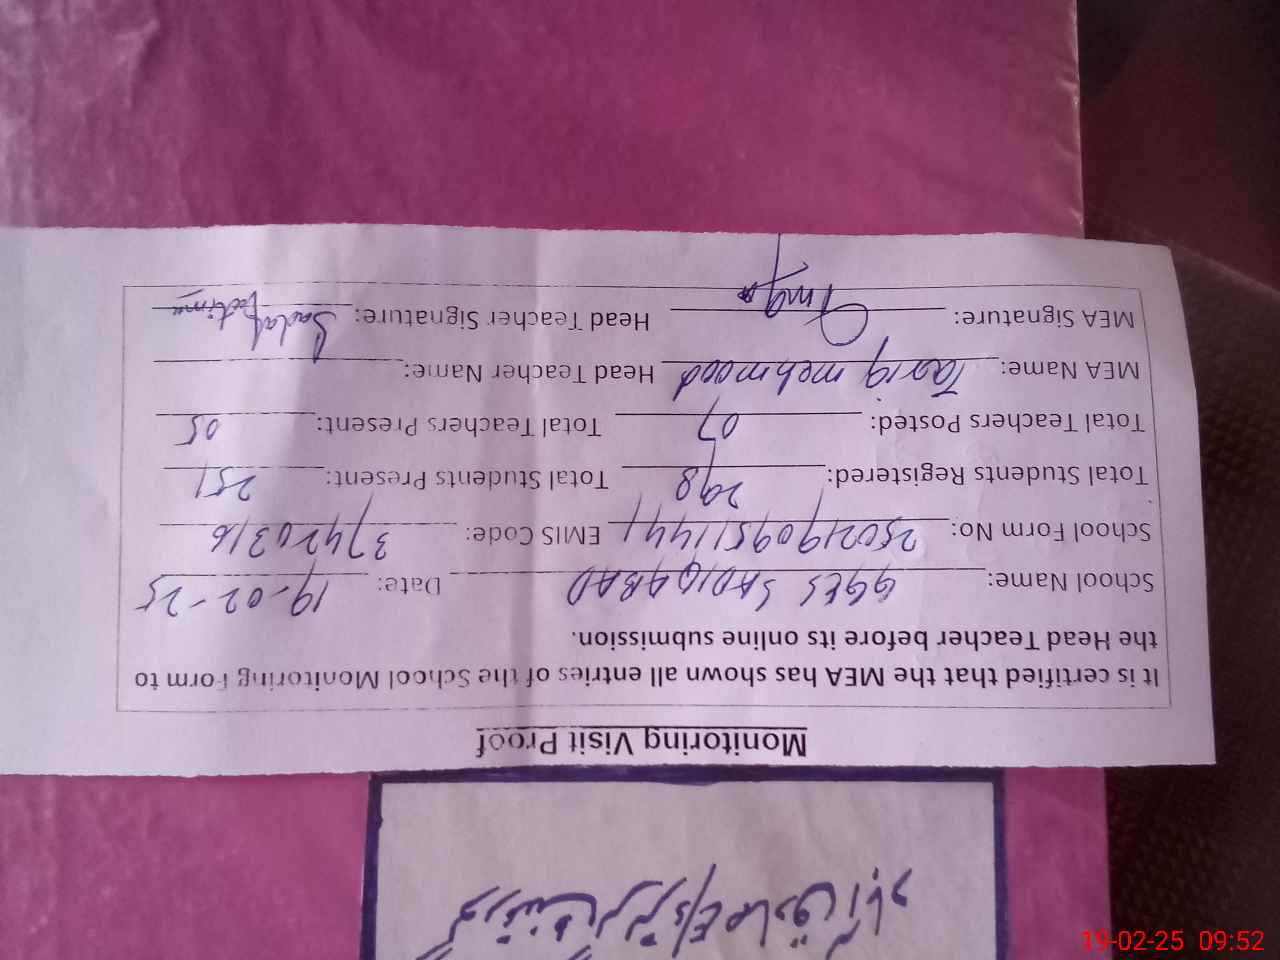 Monitoring Visit Proof
It is certified that the MEA has shown all entries of the School Monitoring Form to
the Head Teacher before its online submission.
School Name: GGES SADIQABAD Date: 19-02-25
School Form No: 25021909511441 EMIS Code: 37420316
Total Students Registered: 298 Total Students Present: 251
Total Teachers Posted: 07 Total Teachers Present: 05
MEA Name: Tariq mehmood Head Teacher Name:
MEA Signature: Head Teacher Signature: Sadaf Fatima
گورنمنٹ گرلز E/S صادق آباد
19-02-25 09:52